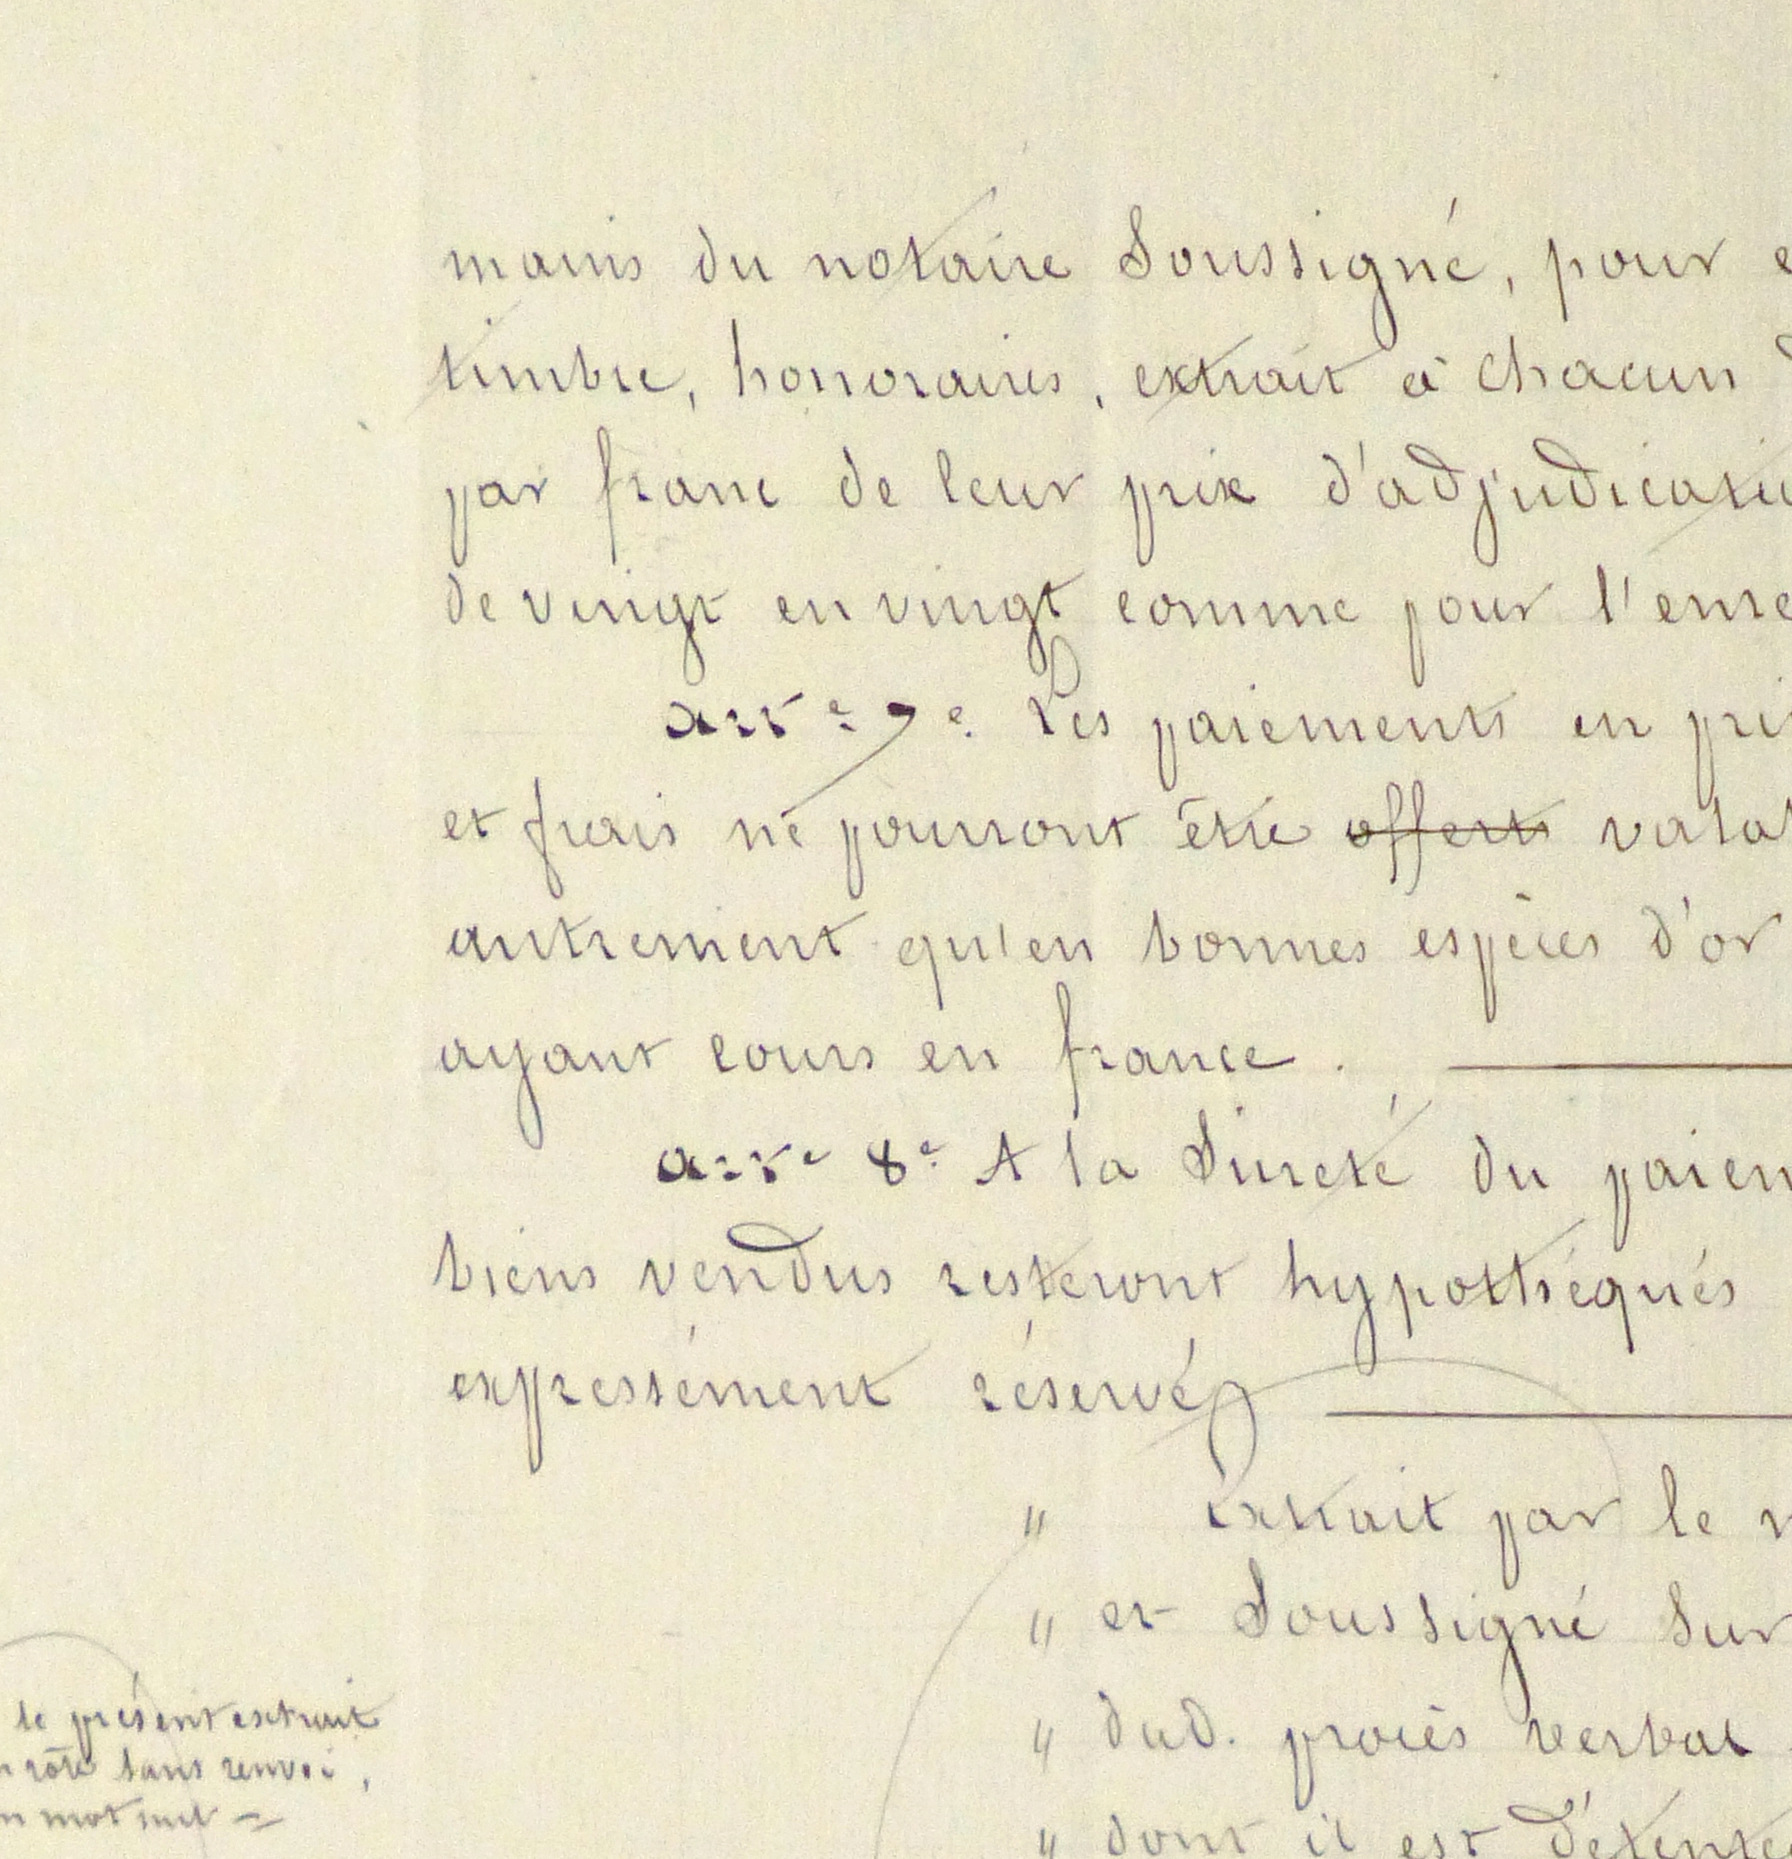 mains du notaire Soussigné, pour e
timbre, honoraires, extrait à chacun d
par franc de leur prix d'adjudicatio
de vingt en vingt comme pour l'enre
arte 7e. Les paiements en pri
et frais ne pourront être offerts valab
autrement qu'en bonnes espèces d'or
ayant cours en france.
arte 8e A la Sureté du paiem
biens vendus resteront hypothéqués
expressément réservé
" Extrait par le n
" et Soussigné Sur
" dud. procès verbal
" dont il est Détente
le présent extrait
n rôle sans renvoi,
n mot nul =